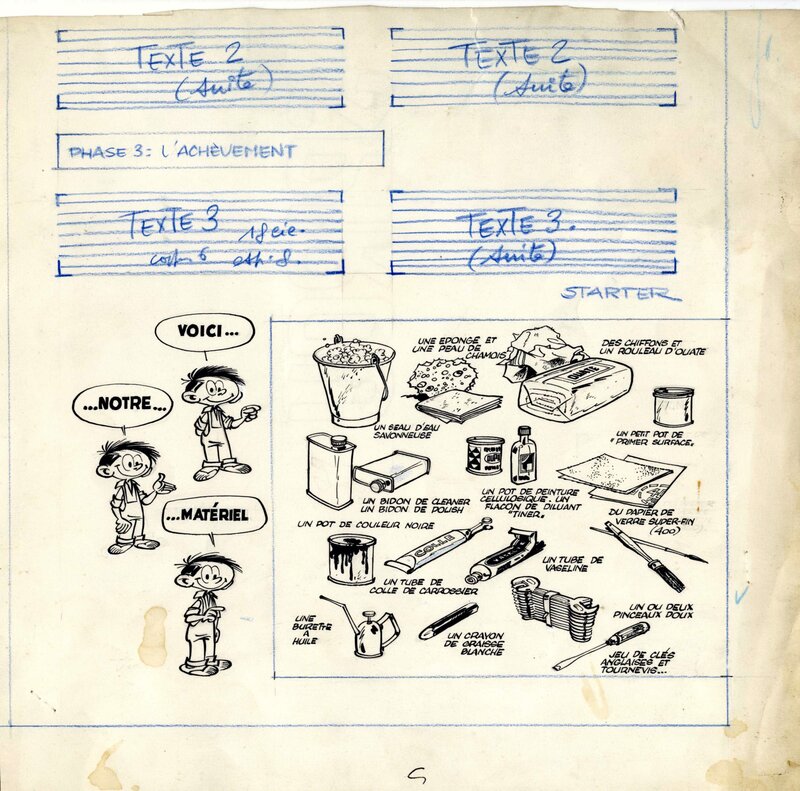 TEXTE 2
(suite)
TEXTE 2
(suite)
PHASE 3: L'ACHÈVEMENT
TEXTE 3
corps 6
TEXTE 3.
(suite)
STARTER
VOICI...
...NOTRE...
...MATÉRIEL
UNE EPONGE ET
UNE PEAU DE
CHAMOIS
DES CHIFFONS ET
UN ROULEAU D'OUATE
OUATE
UN SEAU D'EAU
SAVONNEUSE
UN PETIT POT DE
"PRIMER SURFACE.
UN BIDON DE CLEANER
UN BIDON DE POLISH
UN POT DE PEINTURE
CELLULOSIQUE. UN
FLACON DE DILUANT
"TINER.
DU PAPIER DE
VERRE SUPER-FIN
(400)
UN POT DE COULEUR NOIRE
COLLE
UN TUBE DE
COLLE DE CARROSSIER
UN TUBE DE
VASELINE
UN OU DEUX
PINCEAUX DOUX
UNE
BURETTE
À
HUILE
UN CRAYON
DE GRAISSE
BLANCHE
JEU DE CLÉS
ANGLAISES ET
TOURNEVIS...